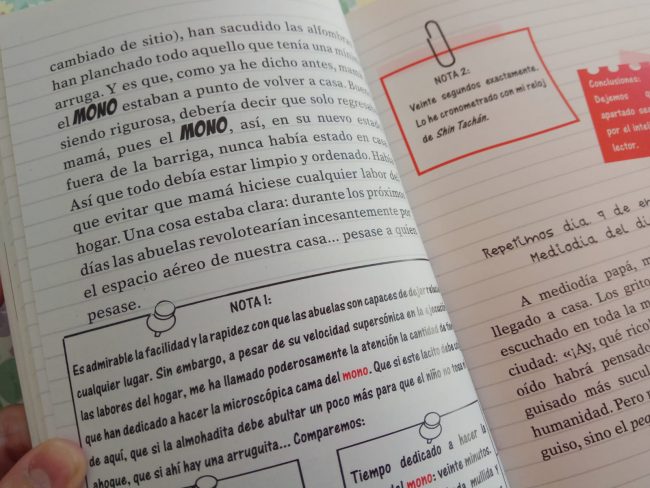 cambiado de sitio), han sacudido las alfombras,
han planchado todo aquello que tenía una mini
arruga. Y es que, como ya he dicho antes, mamá
el MONO estaban a punto de volver a casa. Bueno,
siendo rigurosa, debería decir que solo regresaba
mamá, pues el MONO, así, en su nuevo estado
fuera de la barriga, nunca había estado en casa.
Así que todo debía estar limpio y ordenado. Había
que evitar que mamá hiciese cualquier labor del
hogar. Una cosa estaba clara: durante los próximos
días las abuelas revolotearían incesantemente por
el espacio aéreo de nuestra casa... pesase a quien
pesase.
NOTA 1:
Es admirable la facilidad y la rapidez con que las abuelas son capaces de dejar
cualquier lugar. Sin embargo, a pesar de su velocidad supersónica en la ejecución
las labores del hogar, me ha llamado poderosamente la atención la cantidad de
que han dedicado a hacer la microscópica cama del mono. Que si este lacito debe
de aquí, que si la almohadita debe abultar un poco más para que el niño no tosa
ahoque, que si ahí hay una arruguita... Comparemos:
Tiempo dedicado a hacer la
del mono: veinte minutos.
mullida y
NOTA 2:
Veinte segundos exactamente.
Lo he cronometrado con mi reloj
de Shin Tachán.
Conclusiones:
Dejemos
apartado
por el
lector.
Repetimos día 9 de
Mediodía del
A mediodía papá,
llegado a casa. Los
escuchado en toda la
ciudad: «¡Ay, qué
oído habrá pensado
guisado más
humanidad. Pero
guiso, sino el